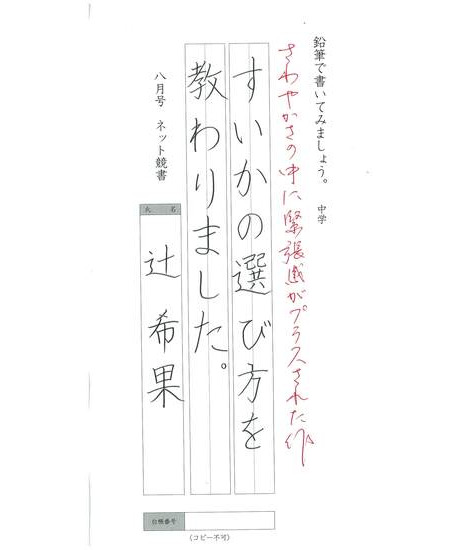 鉛筆で書いてみましょう。 中学
さわやかさの中に緊張感がプラスされた作
すいかの選び方を
教わりました。
八月号 ネット競書
氏名
辻希果
台帳番号
(コピー不可)